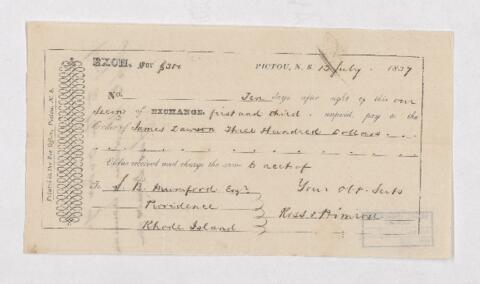 EXCH. For $300 PICTOU, N. S. 15 July. 1837
No. Ten days after sight of this our
Second of EXCHANGE, first and third. unpaid, pay to the
Order of James Dawson Three Hundred Dollars
Value received and charge the same to acct of
To J. B. Mumford Esqr. Your obt. Servts
Providence Ross & Primrose
Rhode Island
Printed at the Bee Office, Pictou, N. S.